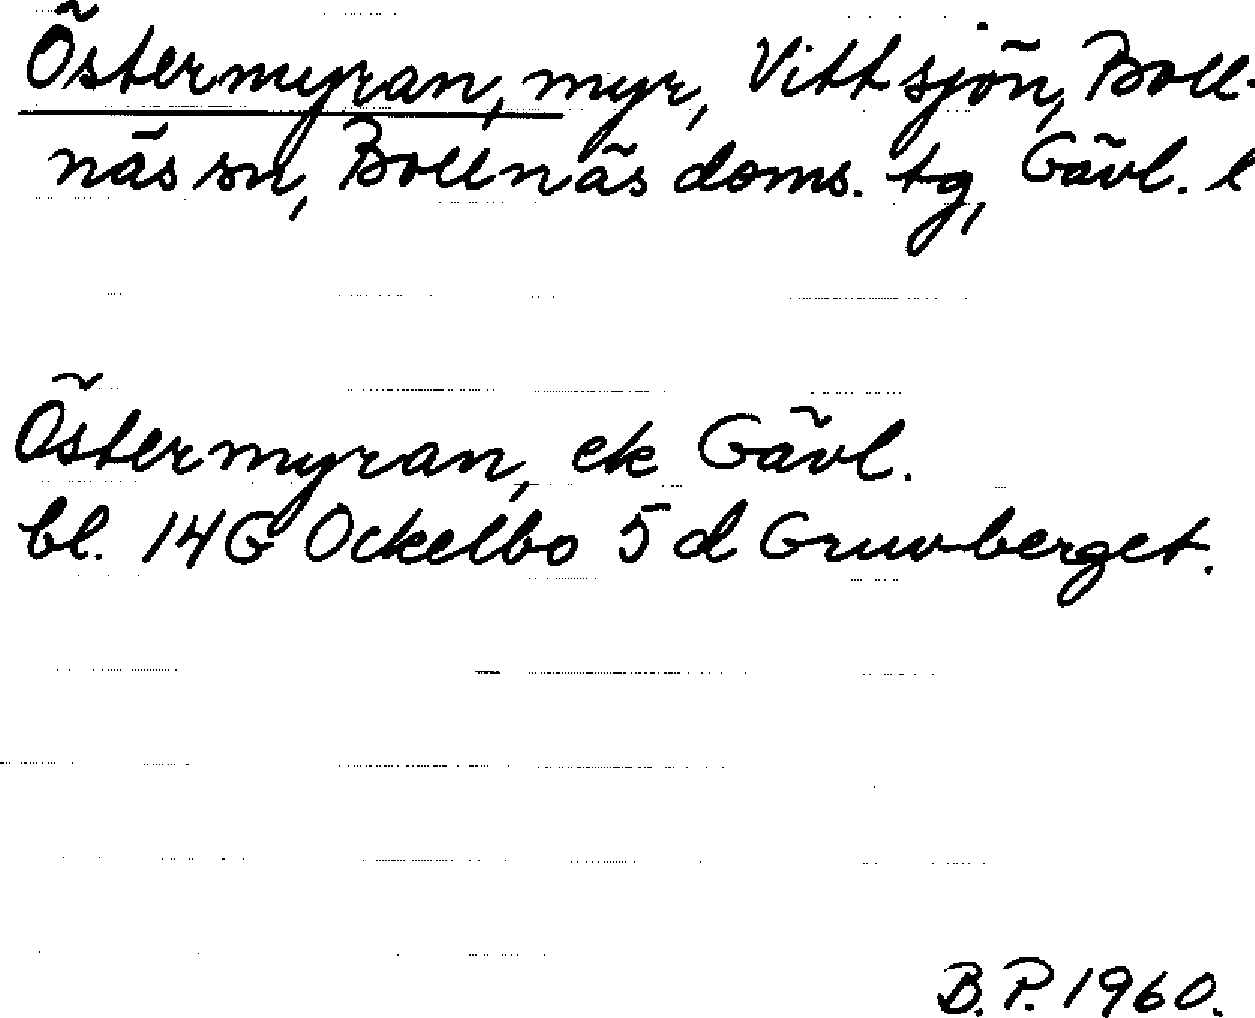 Östermyran, myr, Vittsjön, Boll-
näs sn, Bollnäs doms. tg, Gävl. l
Östermyran, ek Gävl.
bl. 14G Ockelbo 5d Gruvberget.
B.P. 1960.